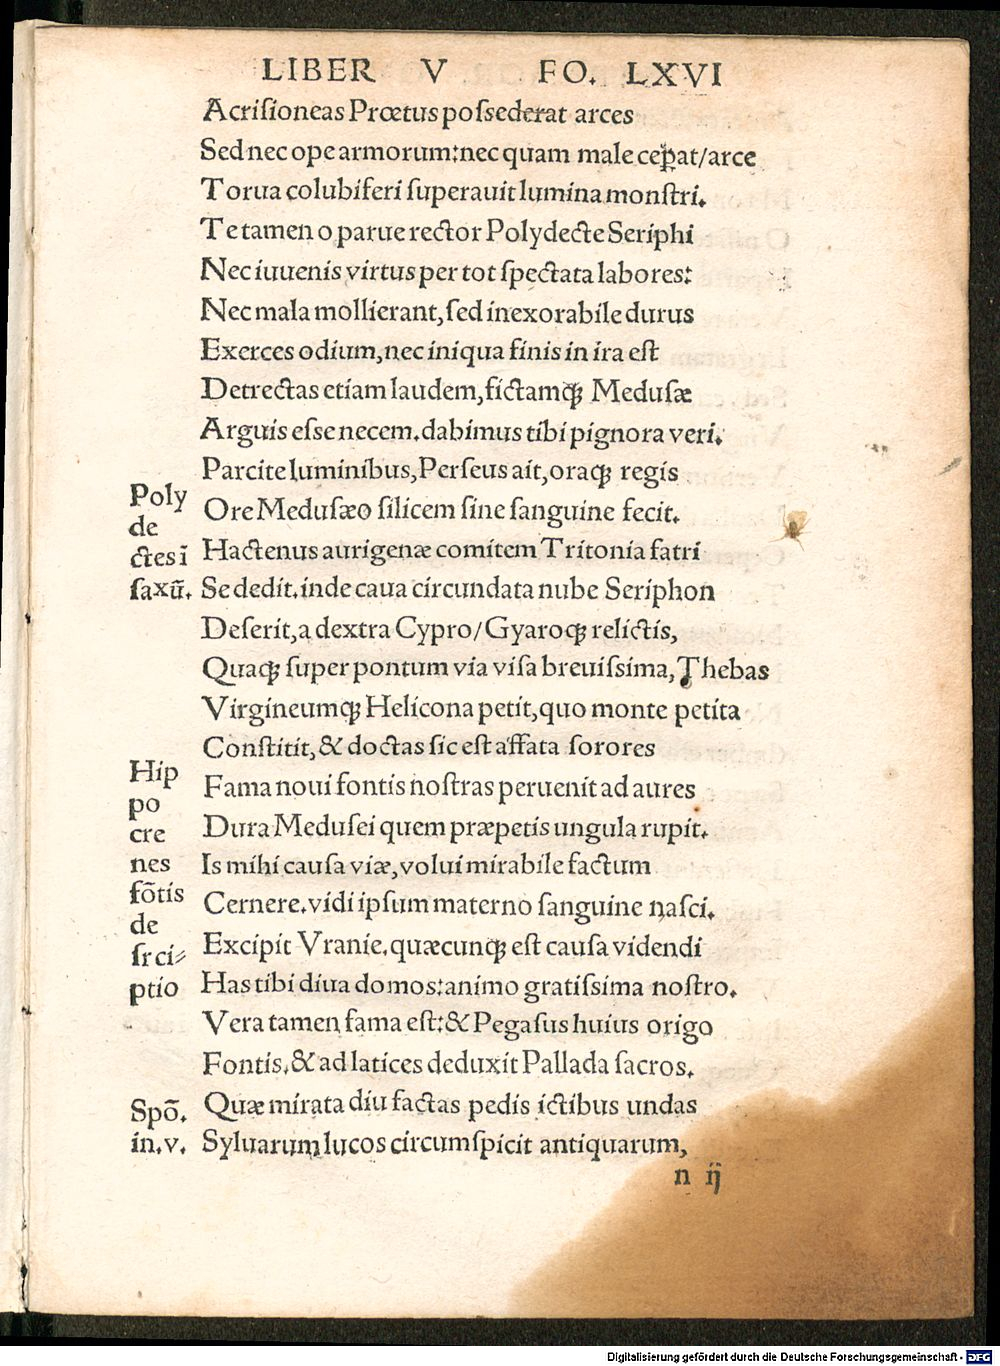 LIBER V FO. LXVI
Acriſioneas Prœtus poſſederat arces
Sed nec ope armorum:nec quam male ceꝑat/arce
Torua colubiferi ſuperauit lumina monſtri.
Te tamen o parue rector Polydecte Seriphi
Nec iuuenis virtus per tot ſpectata labores:
Nec mala mollierant,ſed inexorabile durus
Exerces odium,nec iniqua finis in ira eſt
Detrectas etiam laudem,fictamqꝫ Meduſæ
Arguis eſſe necem.dabimus tibi pignora veri.
Parcite luminibus,Perſeus ait,oraqꝫ regis
Poly
de
ctes ī
ſaxū.
Ore Meduſæo ſilicem ſine ſanguine fecit.
Hactenus aurigenæ comitem Tritonia fatri
Se dedit.inde caua circundata nube Seriphon
Deſerit,a dextra Cypro/Gyaroqꝫ relictis,
Quaqꝫ ſuper pontum via viſa breuiſſima,Thebas
Virgineumqꝫ Helicona petit,quo monte petita
Conſtitit,& doctas ſic eſt affata ſorores
Hip
po
cre
nes
fōtis
de
ſrci⸗
ptio
Fama noui fontis noſtras peruenit ad aures
Dura Meduſei quem præpetis ungula rupit.
Is mihi cauſa viæ,volui mirabile factum
Cernere.vidi ipſum materno ſanguine naſci.
Excipit Vranie.quæcunqꝫ eſt cauſa videndi
Has tibi diua domos:animo gratiſſima noſtro.
Vera tamen fama eſt:& Pegaſus huius origo
Fontis.& ad latices deduxit Pallada ſacros.
Spō.
in.v.
Quæ mirata diu factas pedis ictibus undas
Syluarum lucos circumſpicit antiquarum,
n ij
Digitalisierung gefördert durch die Deutsche Forschungsgemeinschaft - DFG